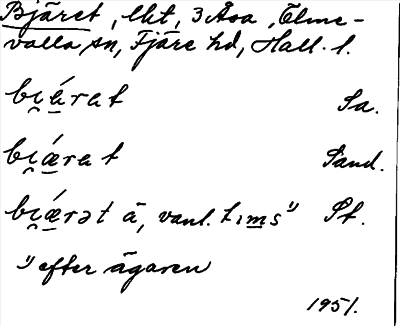 Bjäret, lht, 3 Åsa, Ölme-
valla sn, Fjäre hd, Hall. l.
bi̯ǽrat Sa.
bi̯ǽrat Sand.
bi̯ǽrət ä, vanl. tıms ¹⁾ St.
¹⁾ efter ägaren
1951.